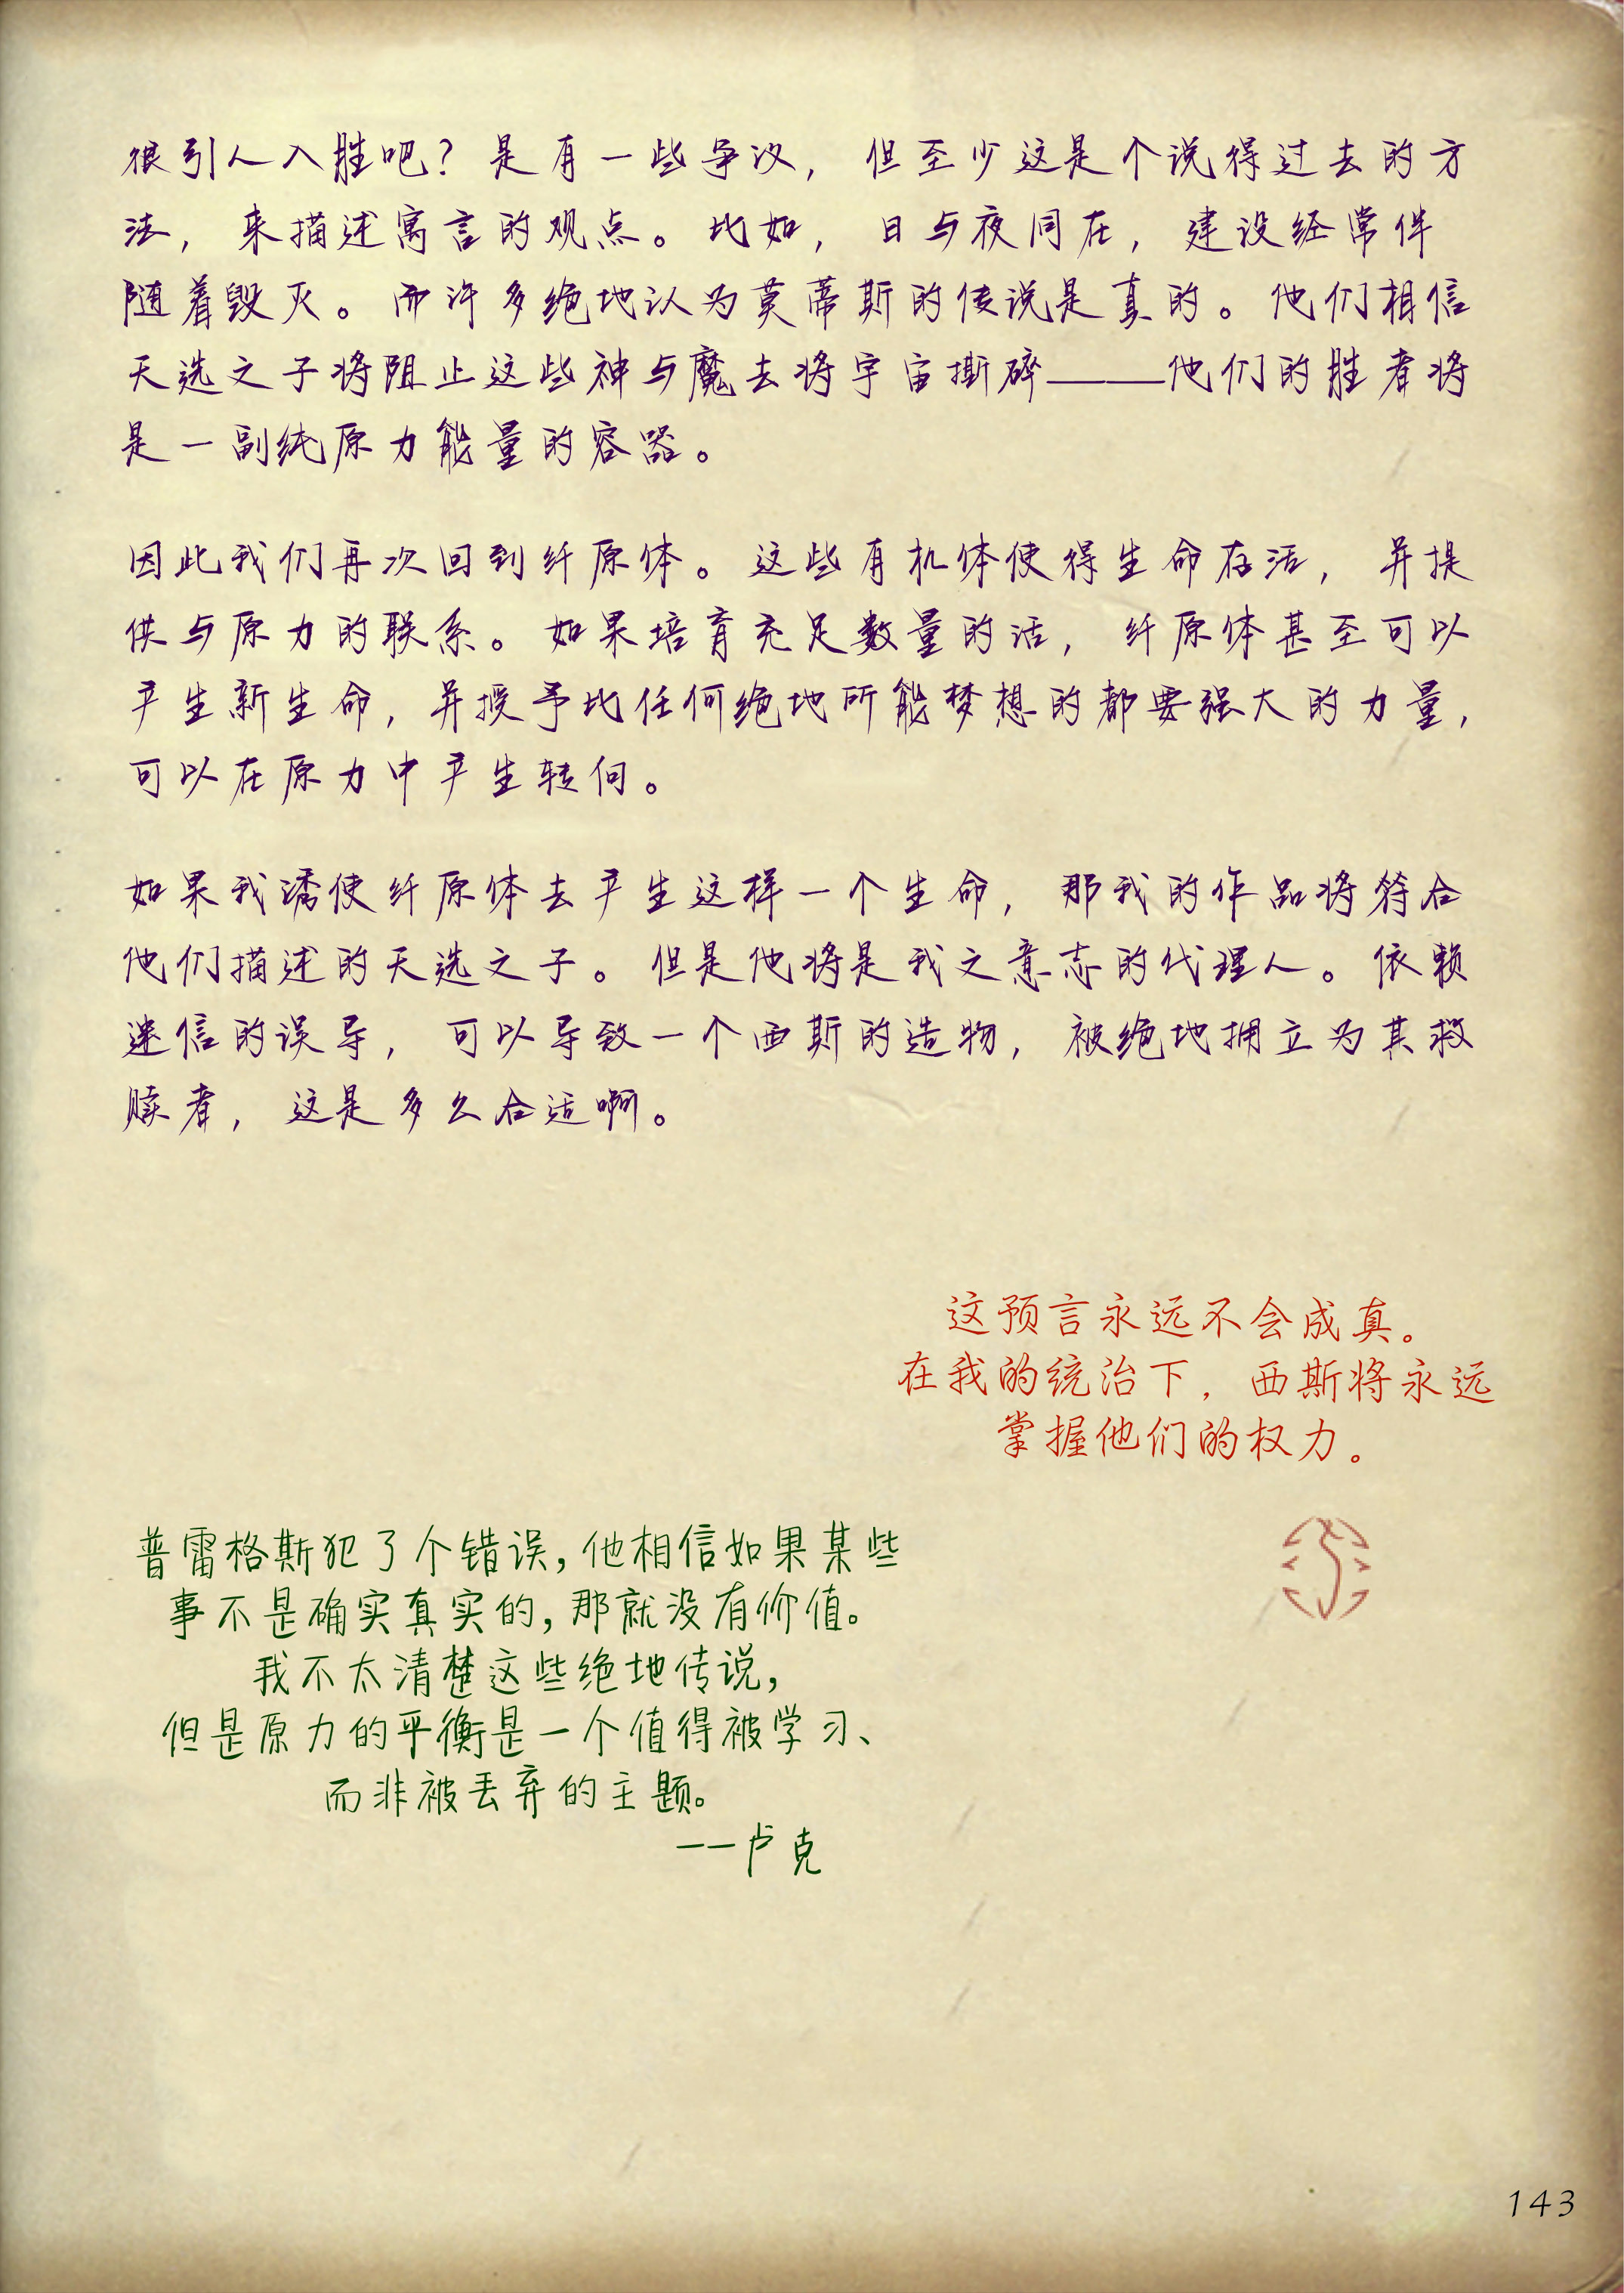 很引人入胜吧？是有一些争议，但至少这是个说得过去的方
法，来描述寓言的观点。比如，日与夜同在，建设经常伴
随着毁灭。而许多绝地认为莫蒂斯的传说是真的。他们相信
天选之子将阻止这些神与魔去将宇宙撕碎——他们的胜者将
是一副纯原力能量的容器。
因此我们再次回到纤原体。这些有机体使得生命存活，并提
供与原力的联系。如果培育充足数量的话，纤原体甚至可以
产生新生命，并授予比任何绝地所能梦想的都要强大的力量，
可以在原力中产生转向。
如果我诱使纤原体去产生这样一个生命，那我的作品将符合
他们描述的天选之子。但是他将是我之意志的代理人。依赖
迷信的误导，可以导致一个西斯的造物，被绝地拥立为其救
赎者，这是多么合适啊。
这预言永远不会成真。
在我的统治下，西斯将永远
掌握他们的权力。
普雷格斯犯了个错误，他相信如果某些
事不是确实真实的，那就没有价值。
我不太清楚这些绝地传说，
但是原力的平衡是一个值得被学习、
而非被丢弃的主题。
——卢克
143